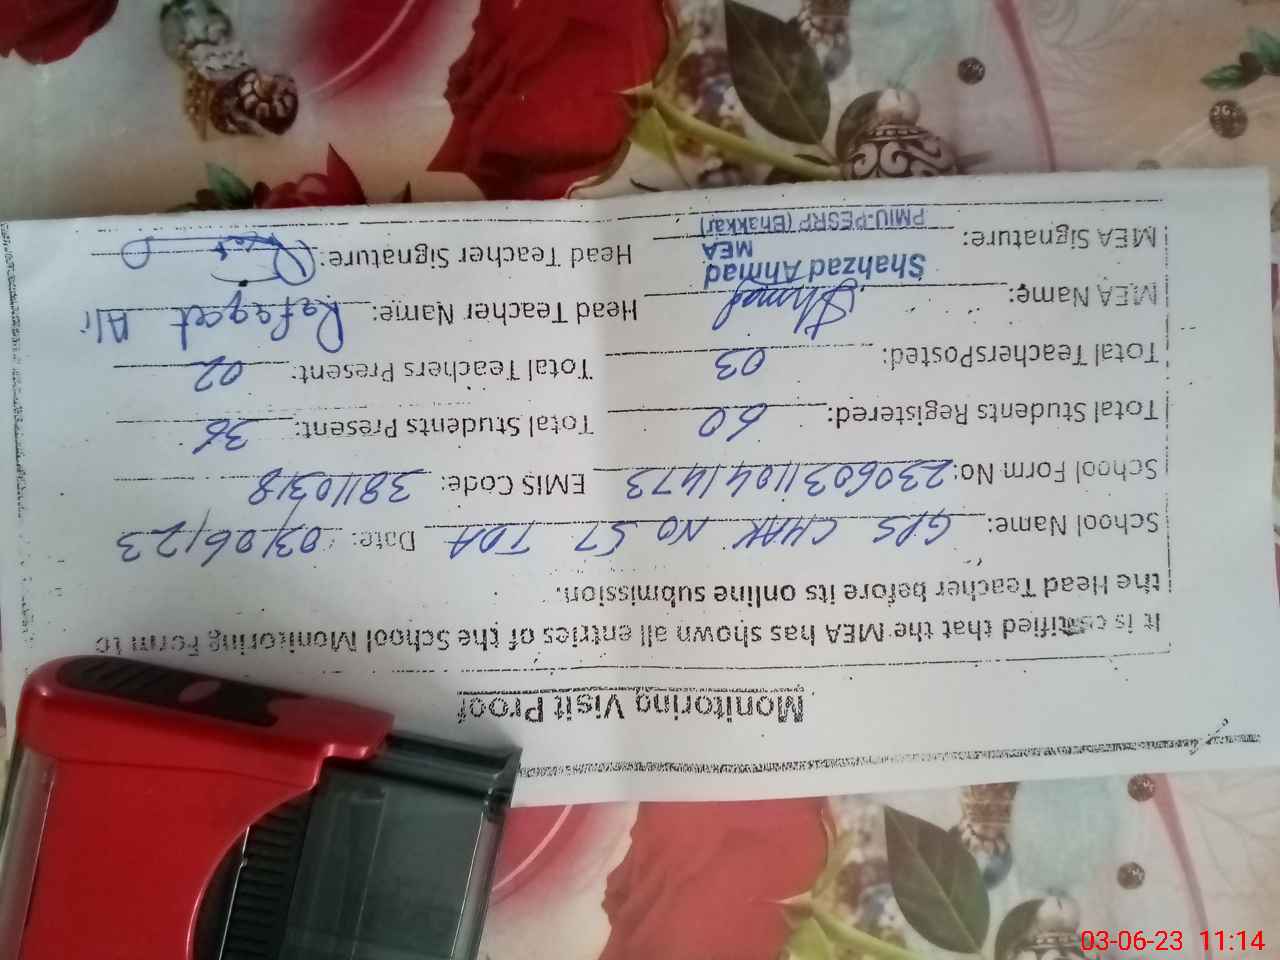 Monitoring Visit Proof
It is certified that the MEA has shown all entries of the School Monitoring Form to
the Head Teacher before its online submission.
School Name: GPS CHAK NO 57 TDA Date: 03/06/23
School Form No: 23060311041473 EMIS Code: 38110318
Total Students Registered: 60 Total Students Present: 38
Total TeachersPosted: 03 Total Teachers Present: 02
MEA Name: Ahmad Head Teacher Name: Refaqat Ali
MEA Signature: Head Teacher Signature:
Shahzad Ahmad
MEA
PMIU-PESRP (Bhakkar)
03-06-23 11:14